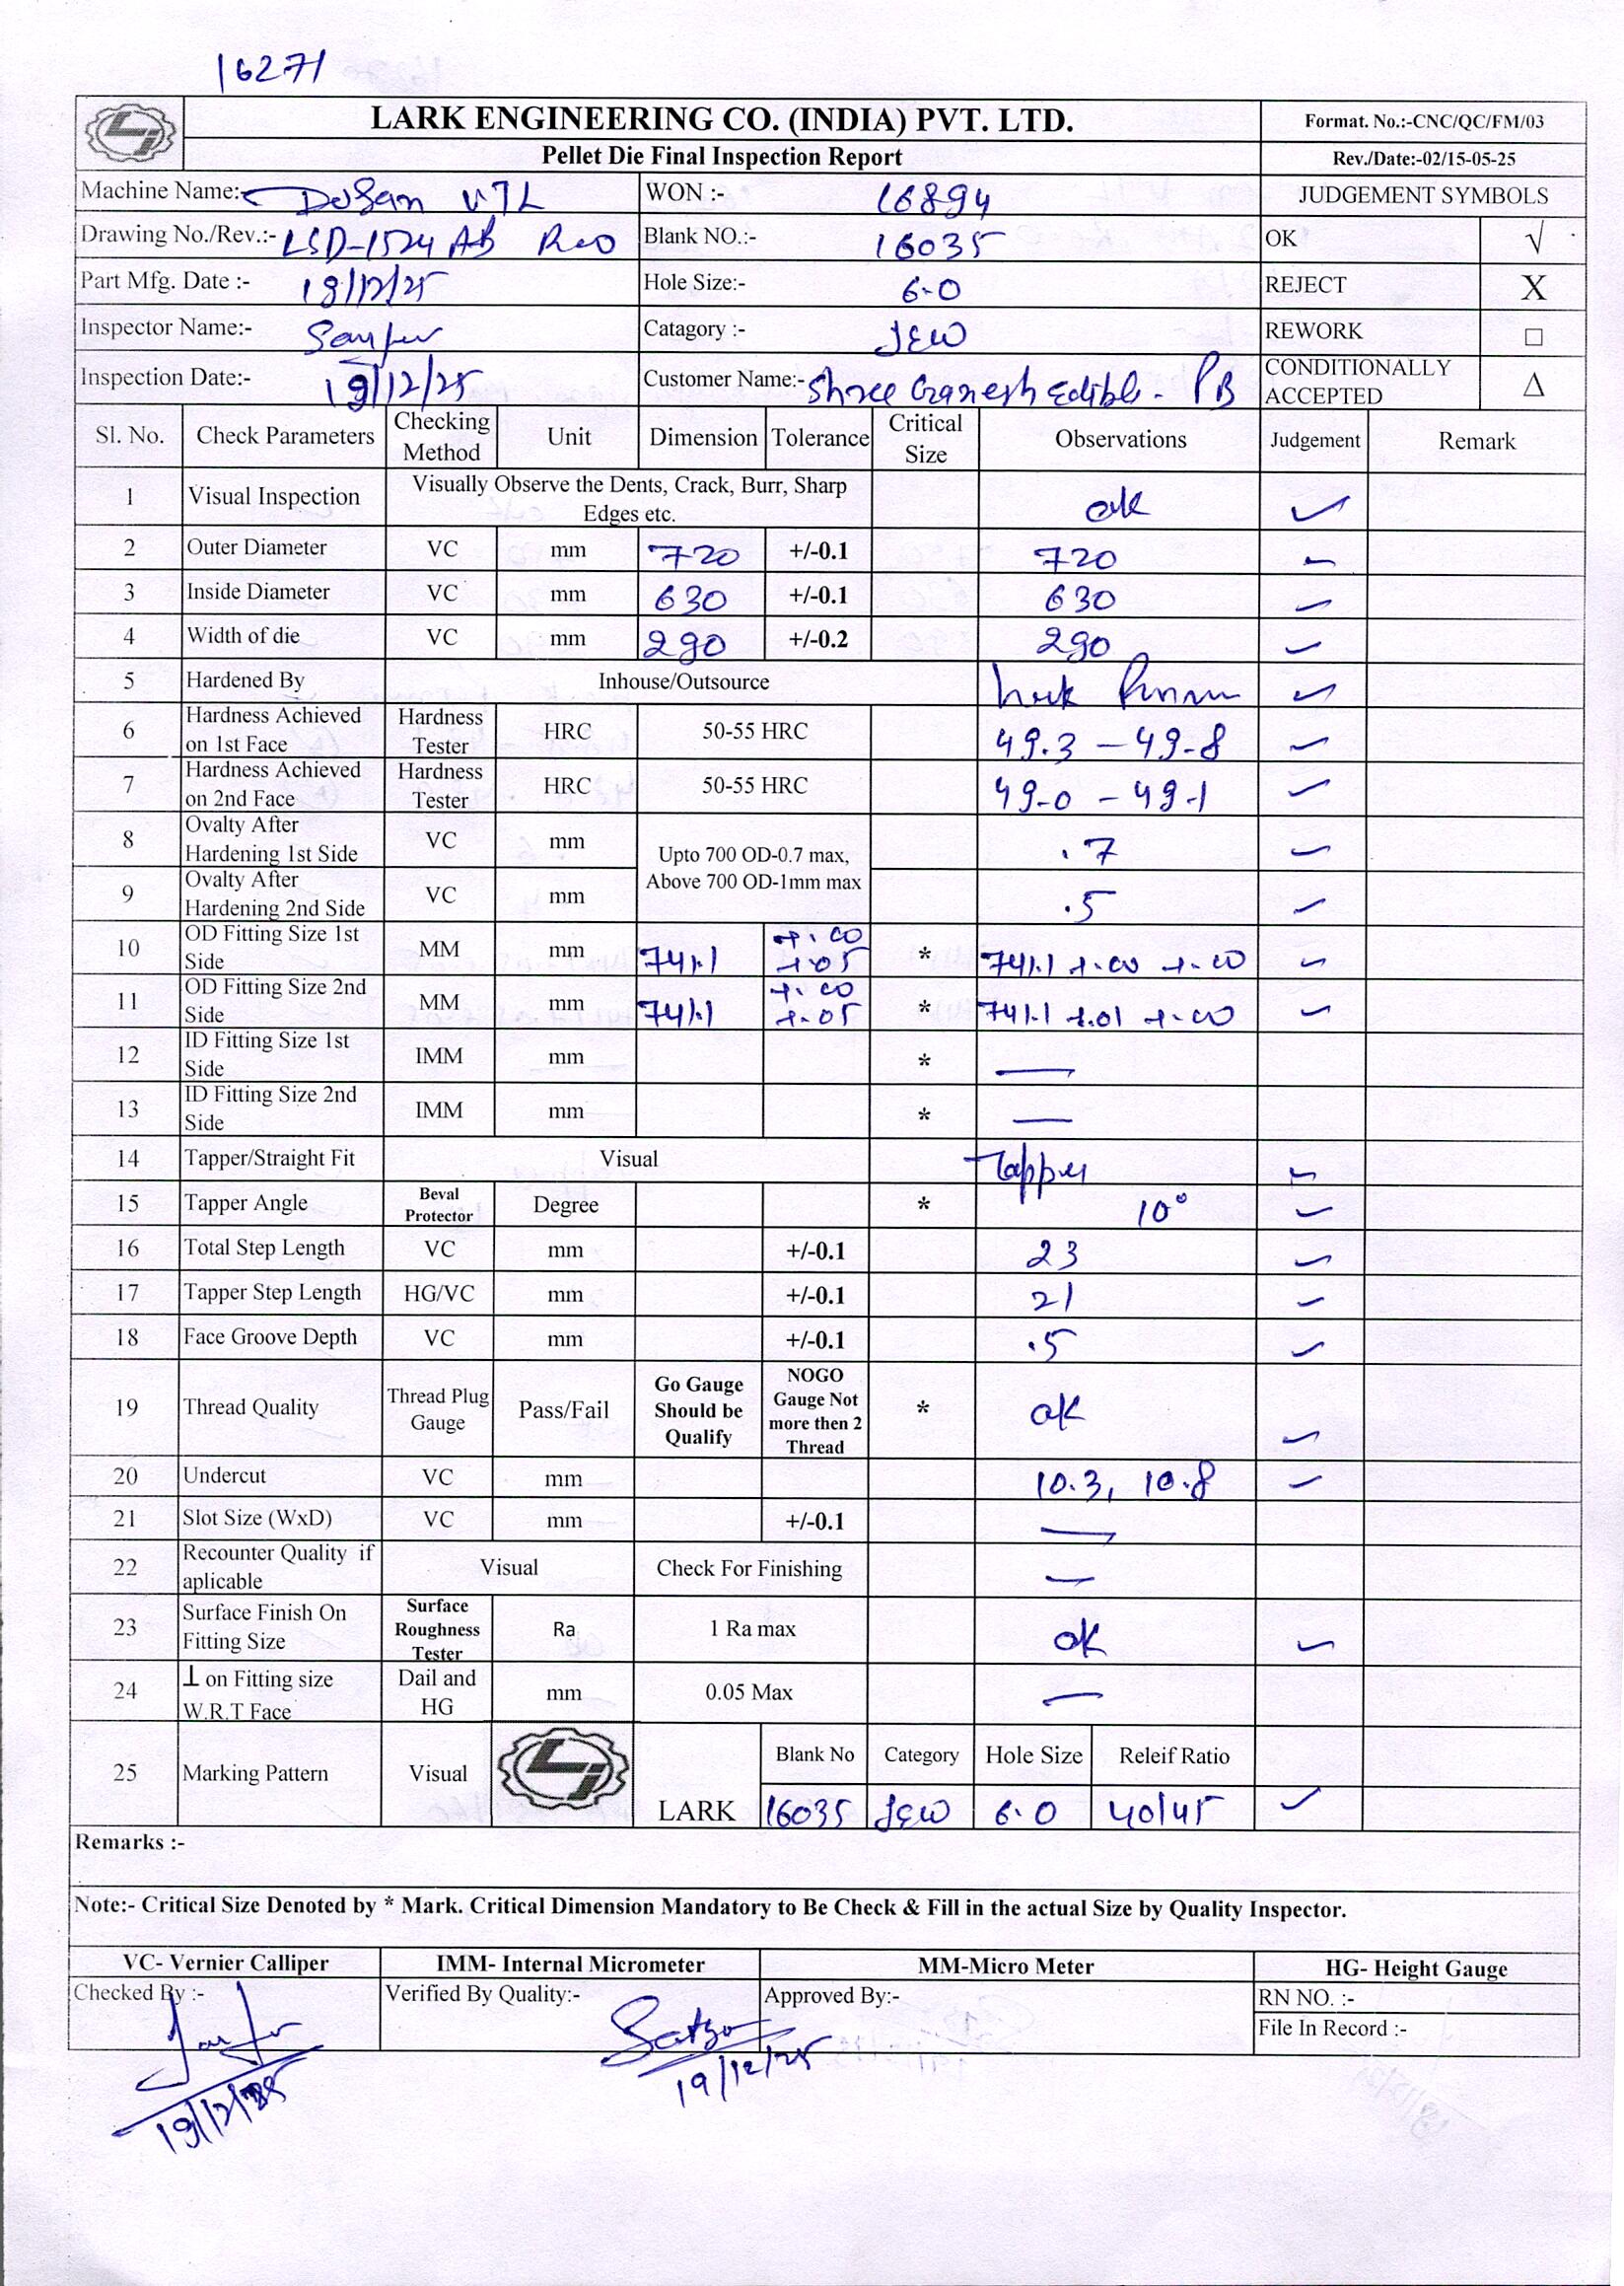 16271
LARK ENGINEERING CO. (INDIA) PVT. LTD.
Format. No.:-CNC/QC/FM/03
Pellet Die Final Inspection Report
Rev./Date:-02/15-05-25
Machine Name:- DoSan VTL WON :- 16894 JUDGEMENT SYMBOLS
Drawing No./Rev.:- LSD-1524 AB R00 Blank NO.:- 16035 OK √
Part Mfg. Date :- 19/12/25 Hole Size:- 6.0 REJECT X
Inspector Name:- Catagory :- JEW REWORK □
Inspection Date:- 19/12/25 Customer Name:- Shree Ganesh Edible - PB CONDITIONALLY ACCEPTED Δ
Sl. No. Check Parameters Checking Method Unit Dimension Tolerance Critical Size Observations Judgement Remark
1 Visual Inspection Visually Observe the Dents, Crack, Burr, Sharp Edges etc. ok ✓
2 Outer Diameter VC mm 720 +/-0.1 720 ✓
3 Inside Diameter VC mm 630 +/-0.1 630 ✓
4 Width of die VC mm 290 +/-0.2 290 ✓
5 Hardened By Inhouse/Outsource ✓
6 Hardness Achieved on 1st Face Hardness Tester HRC 50-55 HRC 49.3 - 49.8 ✓
7 Hardness Achieved on 2nd Face Hardness Tester HRC 50-55 HRC 49.0 - 49.1 ✓
8 Ovalty After Hardening 1st Side VC mm Upto 700 OD-0.7 max, Above 700 OD-1mm max .7 ✓
9 Ovalty After Hardening 2nd Side VC mm .5 ✓
10 OD Fitting Size 1st Side MM mm 741.1 +.00 +.05 * 741.1 +.00 +.00 ✓
11 OD Fitting Size 2nd Side MM mm 741.1 +.00 +.05 * 741.1 +.01 +.00 ✓
12 ID Fitting Size 1st Side IMM mm * —
13 ID Fitting Size 2nd Side IMM mm * —
14 Tapper/Straight Fit Visual Tapper ✓
15 Tapper Angle Beval Protector Degree * 10° ✓
16 Total Step Length VC mm +/-0.1 23 ✓
17 Tapper Step Length HG/VC mm +/-0.1 21 ✓
18 Face Groove Depth VC mm +/-0.1 .5 ✓
19 Thread Quality Thread Plug Gauge Pass/Fail Go Gauge Should be Qualify NOGO Gauge Not more then 2 Thread * ok ✓
20 Undercut VC mm 10.3, 10.8 ✓
21 Slot Size (WxD) VC mm +/-0.1 —
22 Recounter Quality if aplicable Visual Check For Finishing —
23 Surface Finish On Fitting Size Surface Roughness Tester Ra 1 Ra max ok ✓
24 ⊥ on Fitting size W.R.T Face Dail and HG mm 0.05 Max —
25 Marking Pattern Visual LARK Blank No Category Hole Size Releif Ratio
16035 JEW 6.0 40/45 ✓
Remarks :-
Note:- Critical Size Denoted by * Mark. Critical Dimension Mandatory to Be Check & Fill in the actual Size by Quality Inspector.
VC- Vernier Calliper IMM- Internal Micrometer MM-Micro Meter HG- Height Gauge
Checked By :- Verified By Quality:- Approved By:- RN NO. :-
File In Record :-
19/12/25
19/12/25